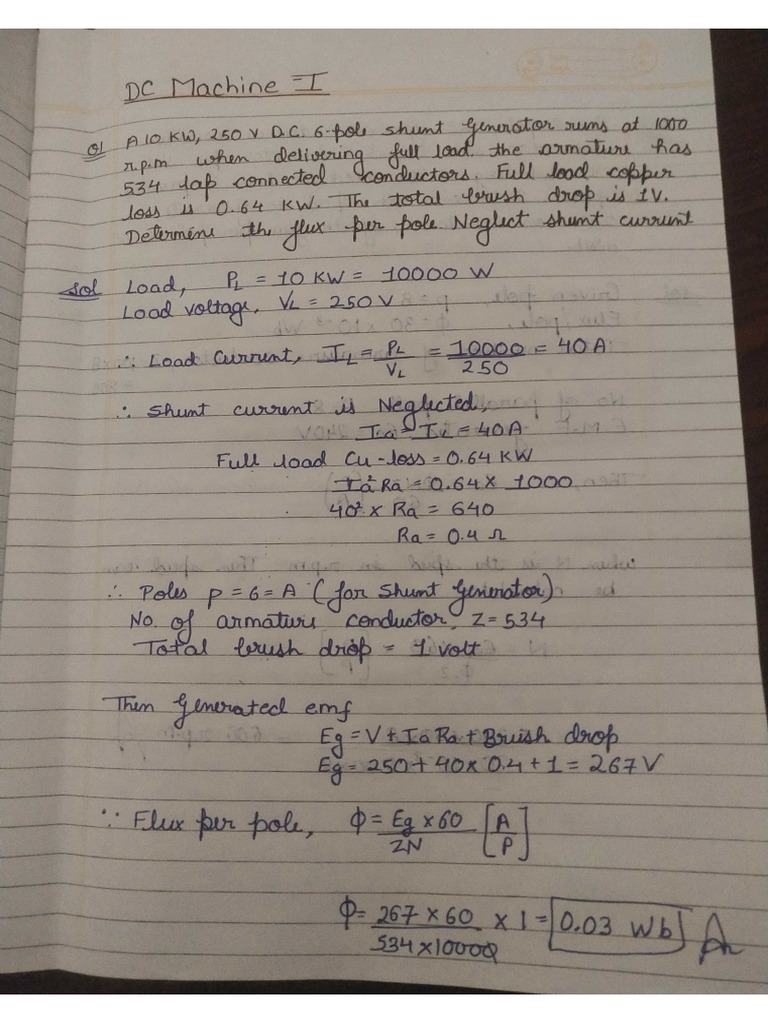 DC Machine -I
Q1 A 10 KW, 250 V D.C. 6-pole shunt Generator runs at 1000
r.p.m when delivering full load. the armature has
534 lap connected conductors. Full load copper
loss is 0.64 KW. The total brush drop is 1V.
Determine the flux per pole. Neglect shunt current
Sol Load, PL = 10 KW = 10000 W
Load voltage, VL = 250 V
∴ Load Current, IL = PL/VL = 10000/250 = 40 A
∴ Shunt current is Neglected,
Ia = IL = 40 A
Full load Cu-loss = 0.64 KW
Ia²Ra = 0.64 × 1000
40² × Ra = 640
Ra = 0.4 Ω
∴ Poles P = 6 = A (for Shunt Generator)
No. of armature conductor, Z = 534
Total brush drop = 1 volt
Then Generated emf
Eg = V + Ia Ra + Brush drop
Eg = 250 + 40 × 0.4 + 1 = 267 V
∵ Flux per pole, Φ = Eg × 60/ZN [A/P]
Φ = 267 × 60/534 × 1000 × 1 = 0.03 Wb